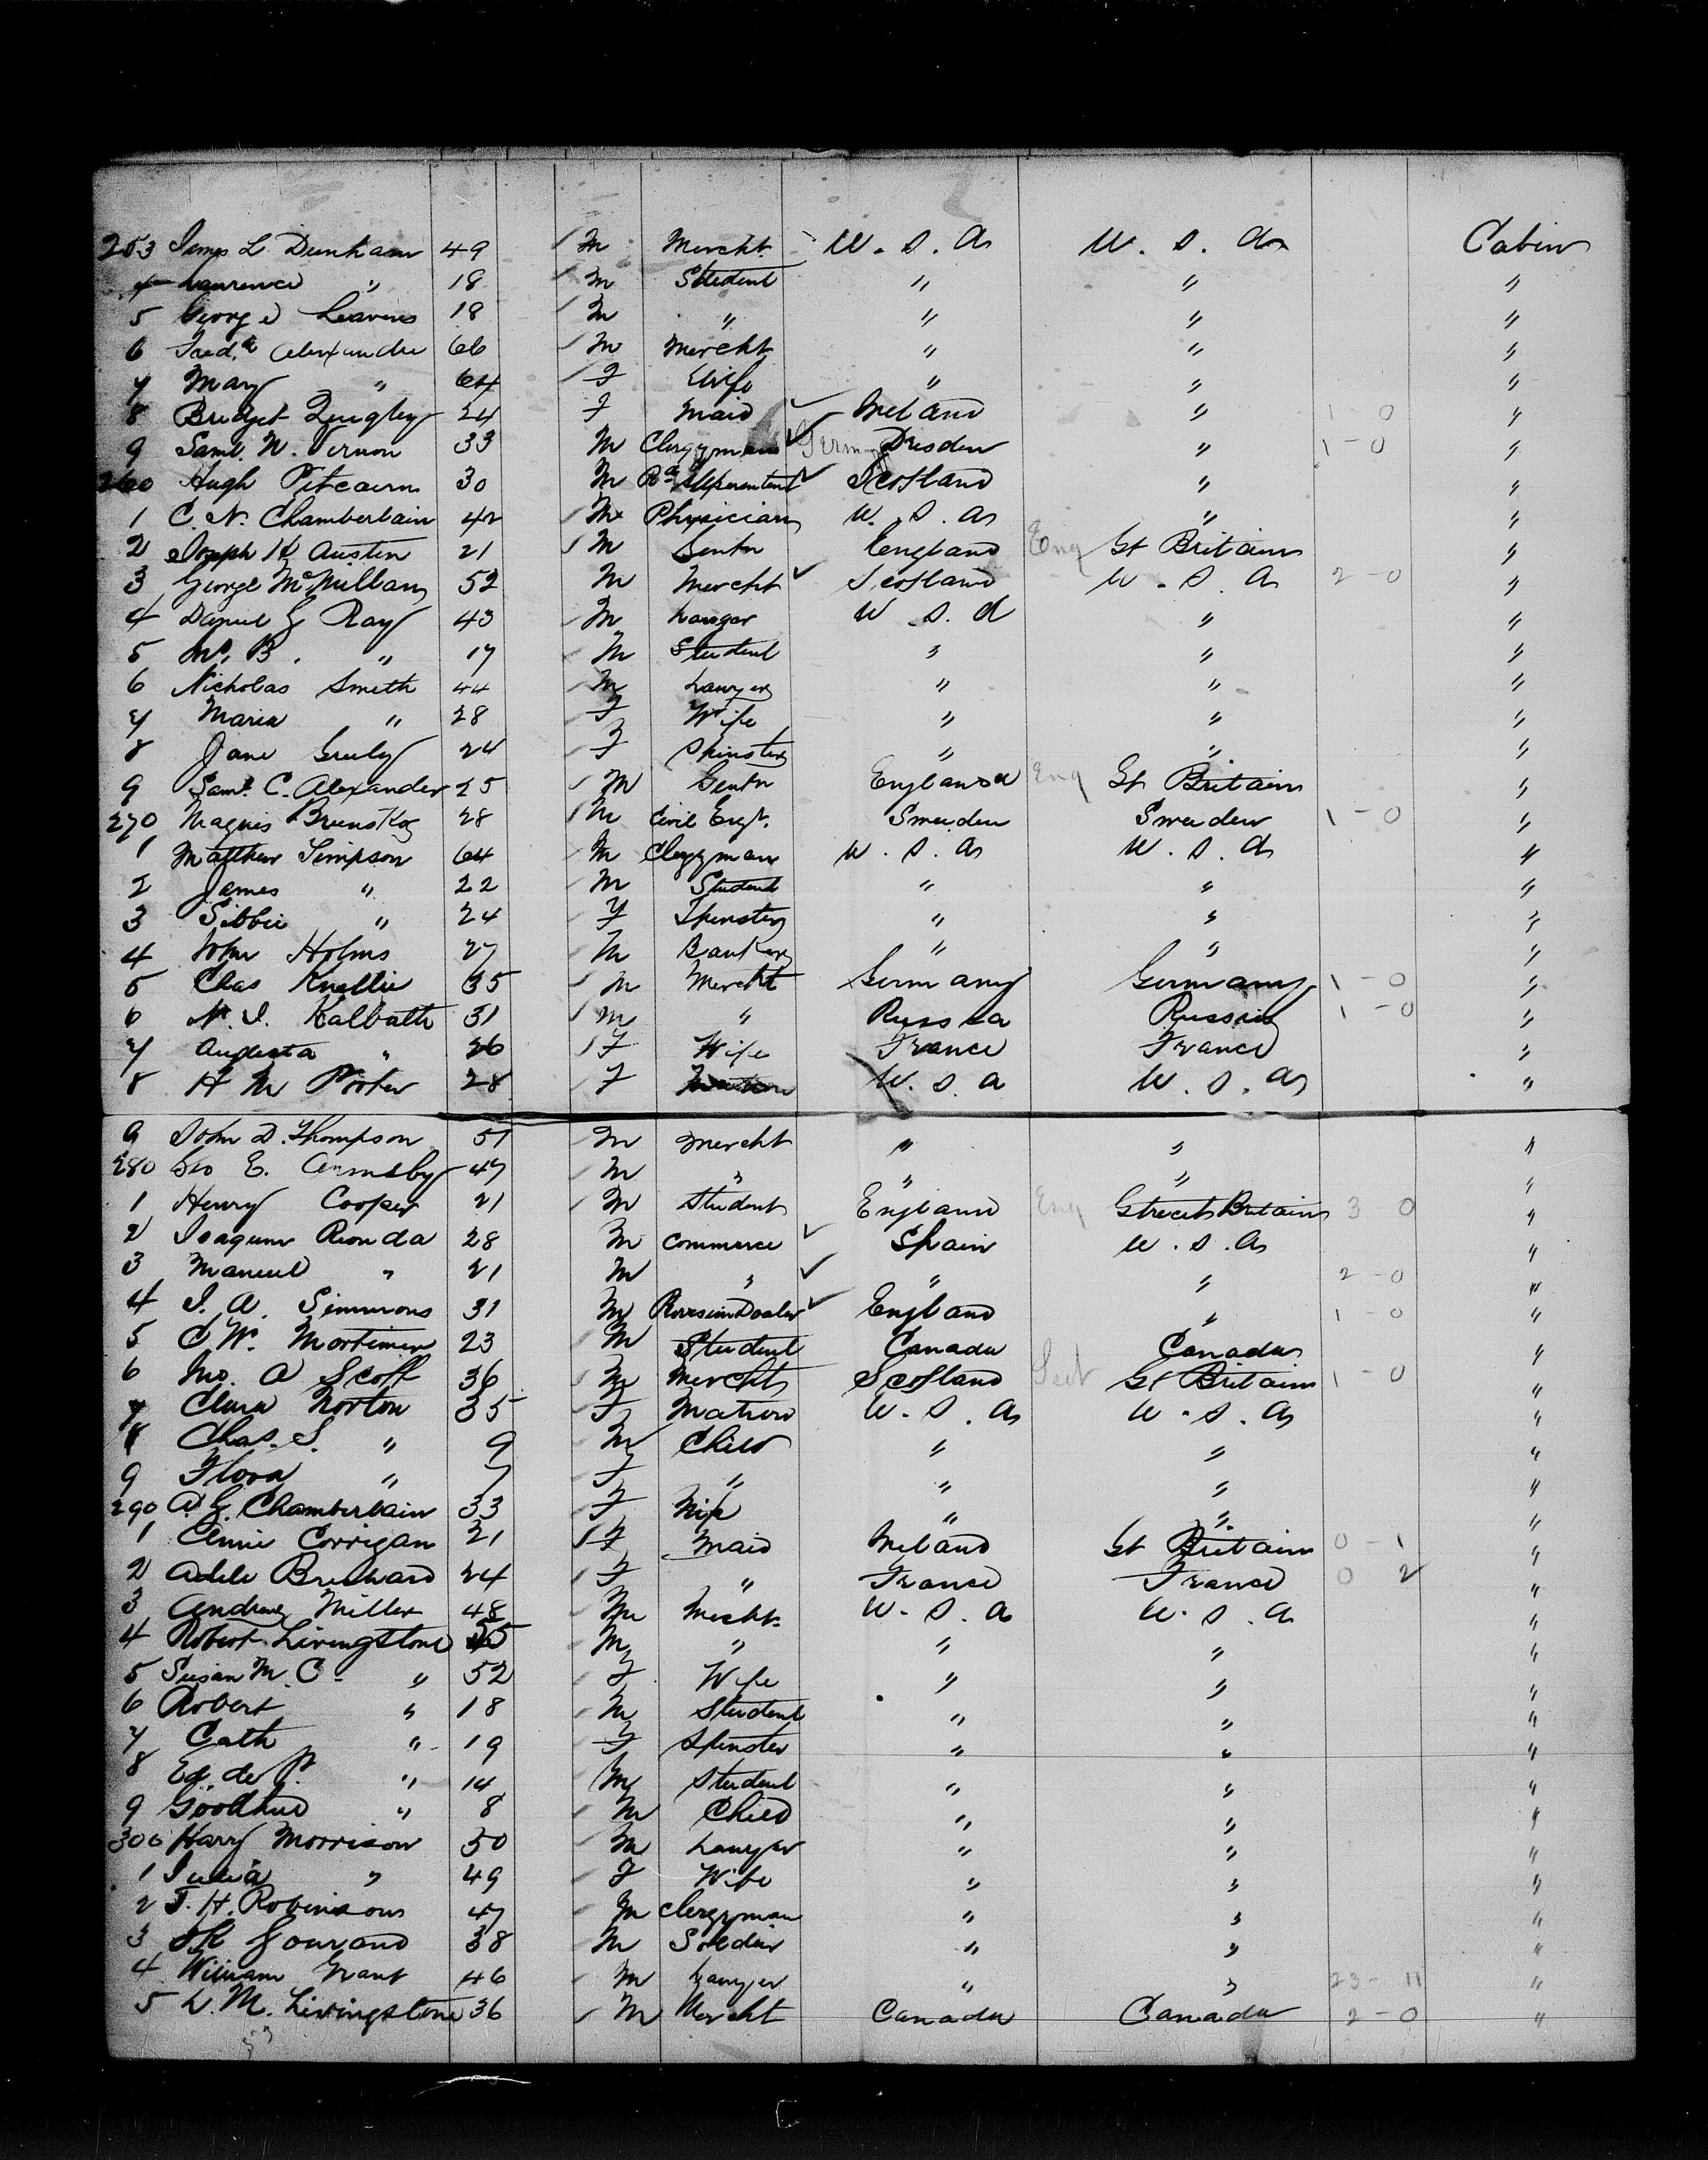 253 James L Dunham 49 M Mercht. U. S. A U. S. A Cabin
4 Laurence " 18 M Student " " "
5 George Leavens 18 M " " " "
6 Fred.k Alexandre 66 M Mercht " " "
7 Mary " 64 F Wife " " "
8 Bridget Quigley 24 F Maid Ireland " 1-0 "
9 Saml. W. Vernon 33 M Clergyman Germ Dresden " 1-0 "
260 Hugh Pitcairn 30 M Rd Scotland " "
1 C. N. Chamberlain 42 M Physician U. S. A " "
2 Joseph H Austin 21 M Gentn England Eng Gt Britain "
3 George McMillan 52 M Mercht Scotland U. S. A 2-0 "
4 Daniel G Ray 43 M Lawyer U. S. A " "
5 Wm. B. " 17 M Student " " "
6 Nicholas Smith 44 M Lawyer " " "
7 Maria " 28 F Wife " " "
8 Jane Gruly 24 F Spinster " " "
9 Saml. C. Alexander 25 M Gentn England Eng Gt Britain "
270 Magnis 28 M Civil Engr. Sweden Sweden 1-0 "
1 Matthew Simpson 64 M Clergyman U. S. A U. S. A "
2 James " 22 M Student " " "
3 Sibbie " 24 F Spinster " " "
4 John Holms 27 M Banker " " "
5 Chas Knellie 35 M Mercht Germany Germany 1-0 "
6 N. I. Kalbath 31 M " Russia Russia 1-0 "
7 Augusta " 26 F Wife France France "
8 H M Porter 28 F U. S. A U. S. A "
9 John D. Thompson 51 M Mercht " " "
280 Geo E. Armsby 47 M " " " "
1 Henry Cooper 21 M Student England Eng Great Britain 3 0 "
2 Joaquim Rionda 28 M Commerce Spain U. S. A "
3 Manuel " 21 M " " " 2-0 "
4 J. A. Simmons 31 M Dealer England " 1-0 "
5 C W. Mortimer 23 M Student Canada Canada "
6 Jno. A Scott 36 M Mercht Scotland Scot Gt Britain 1-0 "
7 Clara Norton 35 F Matron U. S. A U. S. A "
8 Chas. S. " 9 M Child " " "
9 Flora " 7 F " " " "
290 A. G. Chamberlain 33 F Wife " " "
1 Annie Corrigan 21 F Maid Ireland Gt Britain 0-1 "
2 Adele Brichard 24 F " France France 0 2 "
3 Andrew Miller 48 M Mercht. U. S. A U. S. A "
4 Robert Livingstone 55 M " " " "
5 Susan M. C. " 52 F Wife " " "
6 Robert " 18 M Student " " "
7 Cath " 19 F Spinster " " "
8 Ed. de P. " 14 M Student " " "
9 Goodhue " 8 M Child " " "
300 Harry Morrison 50 M Lawyer " " "
1 Julia " 49 F Wife " " "
2 T. H. Robinson 47 M Clergyman " " "
3 Gourand 38 M Soldier " " "
4 William Grant 46 M Lawyer " " 23-11 "
5 L. M. Livingstone 36 M Mercht Canada Canada 2-0 "
53